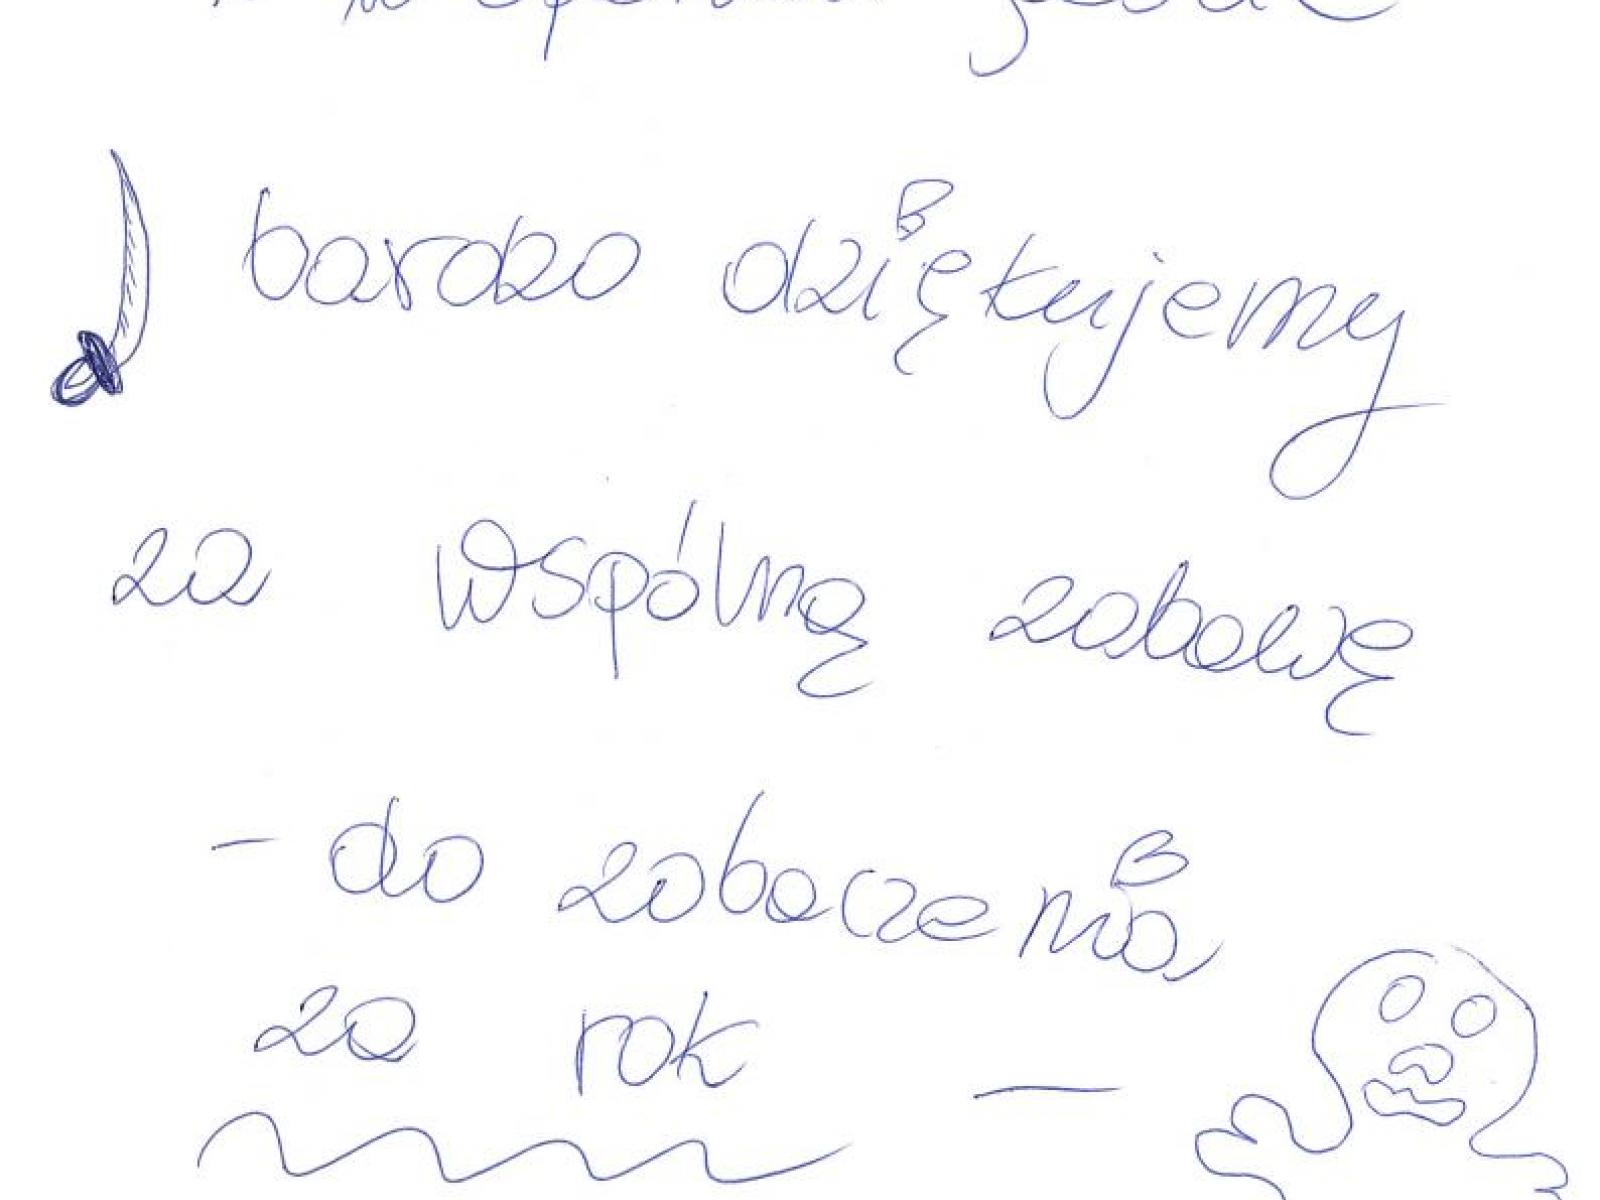 bardzo dziękujemy
za wspólną zabawę
- do zobaczenia
za rok —